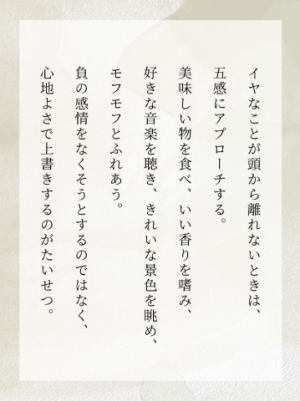 イヤなことが頭から離れないときは、
五感にアプローチする。
美味しい物を食べ、いい香りを嗜み、
好きな音楽を聴き、きれいな景色を眺め、
モフモフとふれあう。
負の感情をなくそうとするのではなく、
心地よさで上書きするのがたいせつ。